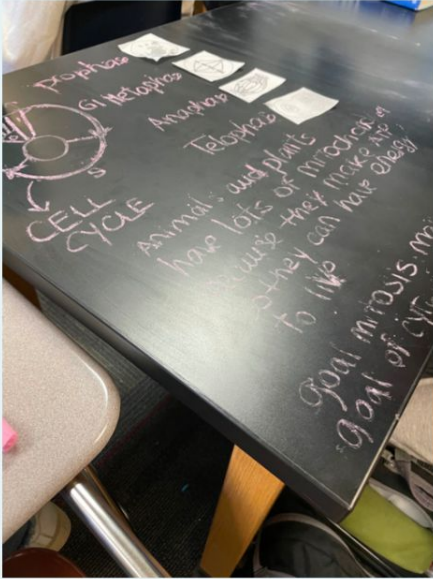 Prophase
Metaphase
Anaphase
Telophase
G1
S
CELL
CYCLE
Animals and plants
have lots of
because they make
so they can have energy
to live
goal mitosis
goal of